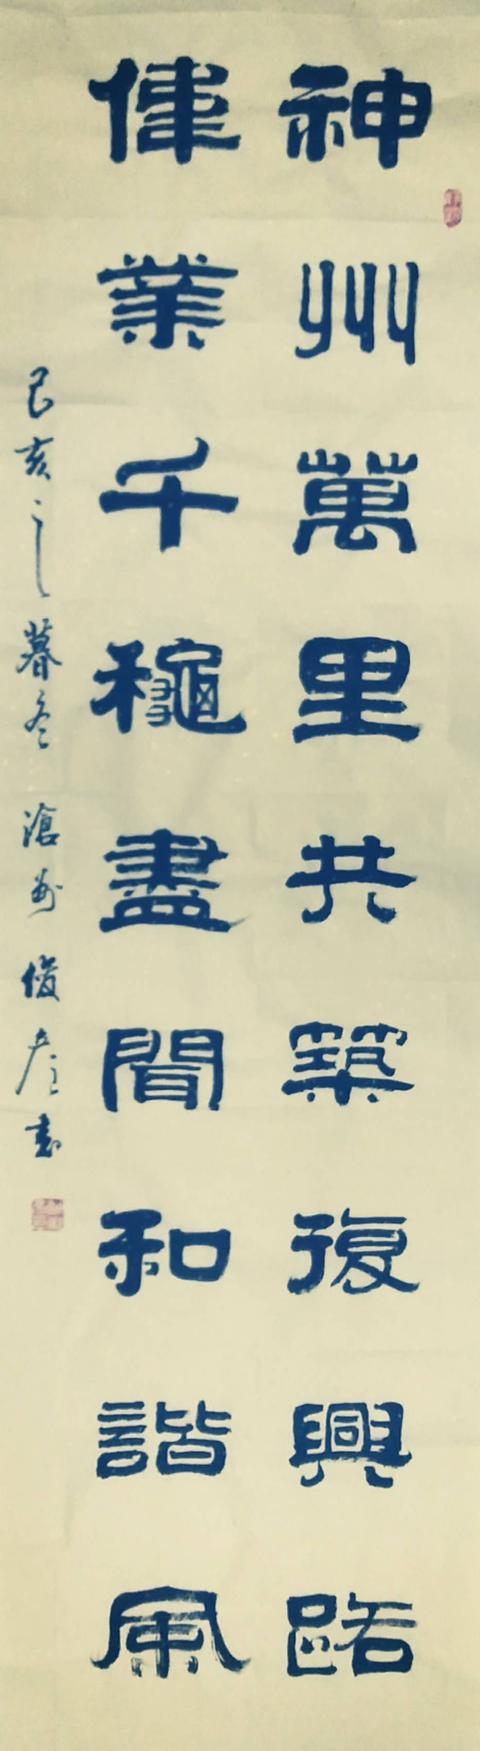 神州萬里共築復興路
偉業千龝盡聞和諧風
己亥之暮冬滄州俊彥書